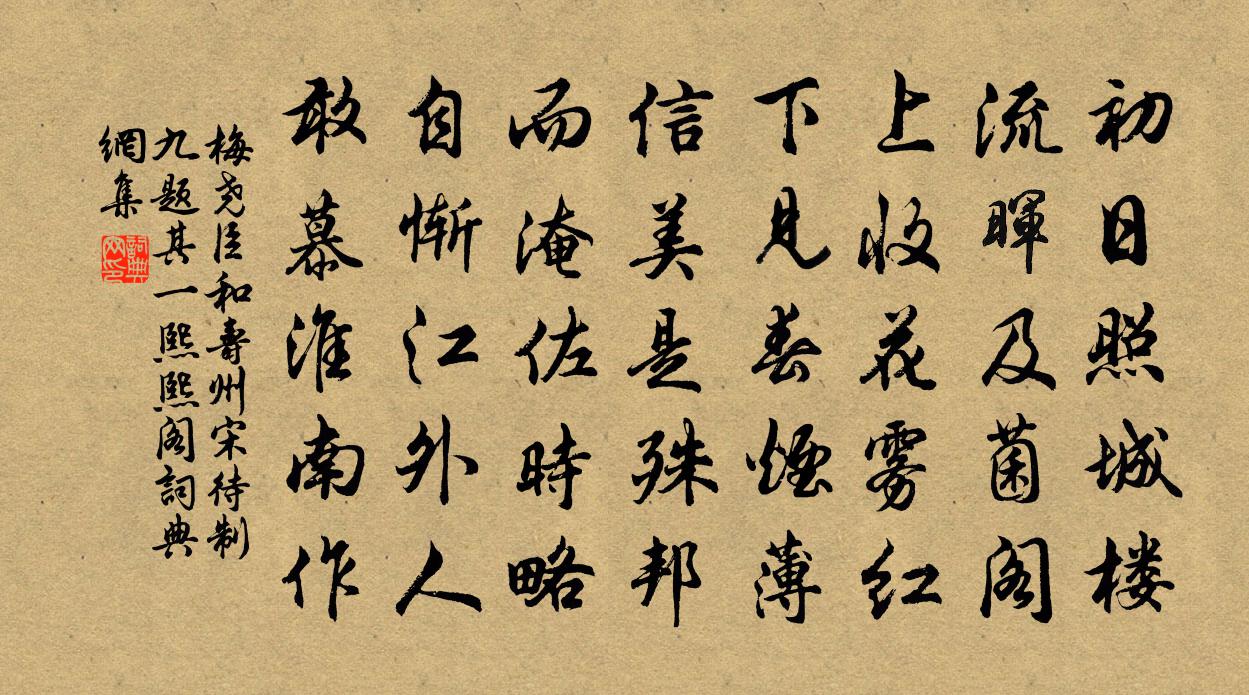 初日照城楼
流暉及菌阁
上收花雾红
下见春煙薄
信美是殊邦
而淹佐時略
自慚江外人
敢慕淮南作
梅尧臣和寿州宋待制
九题其一熙熙阁詞典
網集
詞典网印